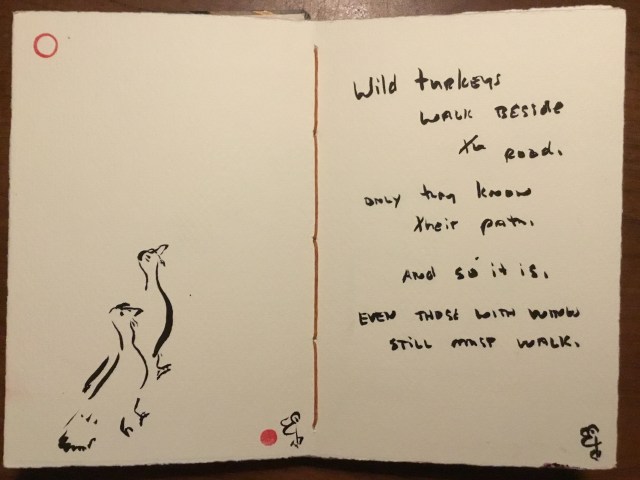 Wild turkeys
walk beside
the road.
only they know
their path.
And so it is,
even those with
still must walk.